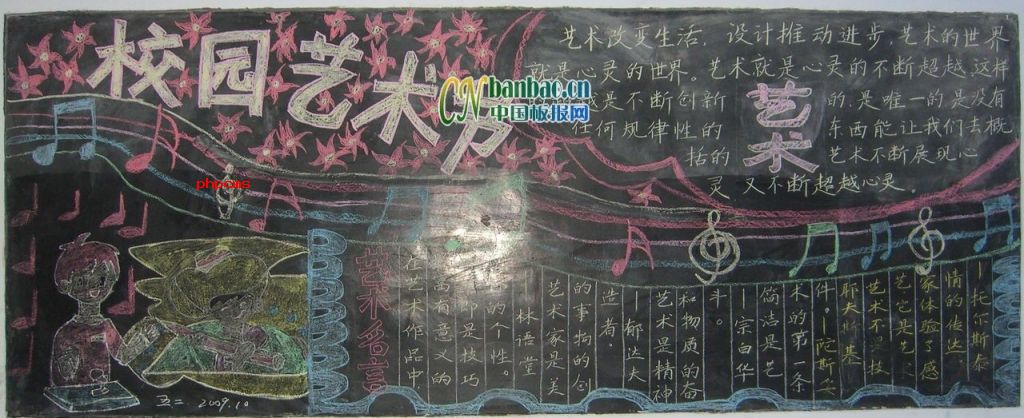 校园艺术节
CN banbao.cn
中国板报网
phpcms
艺术改变生活，设计推动进步，艺术的世界
就是心灵的世界。艺术就是心灵的不断超越，这样
是不断创新
的，是唯一的是没有
任何规律性的
东西能让我们去概
括的
艺术不断展现心
灵又不断超越心灵。
艺术
艺术名言
在艺术作品中
富有意义的
即是技巧
的个性。
—林语堂
艺术家是美
的事物的创
造者。
—郁达夫
艺术是精神
和物质的奋
斗。
—宗白华
简洁是艺
术的第一条
件。
艺术不是技
艺它是艺
家体验了感
情的传达
—托尔斯泰
五二 2009.10